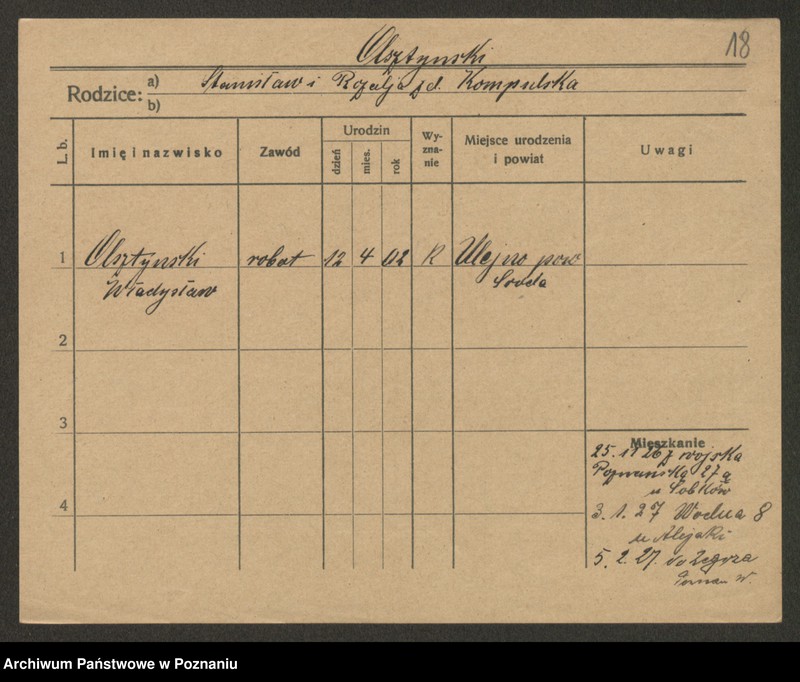 18
Olsztynski
Rodzice: a) Stanisław i Rozalja zd. Kompulska
b)
L. b.
Imię i nazwisko
Zawód
Urodzin
dzień
mies.
rok
Wy-
zna-
nie
Miejsce urodzenia
i powiat
Uwagi
1 Olsztynski robot 12 4 02 R Ulejno pow
Władysław Sroda
2
3
4
Mieszkanie
25. 11 26 z wojska
Poznańska 27a
u Sobków
3. 1. 27 Wodna 8
u
5. 2. 27. do Zegrza
W.
Archiwum Państwowe w Poznaniu